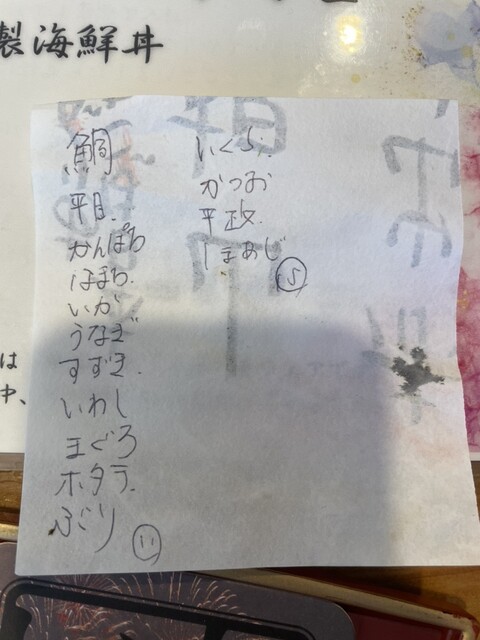 製海鮮丼
鯛
平目.
かんぱち
はまち.
いか.
うなぎ
すずき.
いわし
まぐろ
ホタテ.
ぶり
⑪
いくら.
かつお
平政.
しまあじ
⑤
は
中、